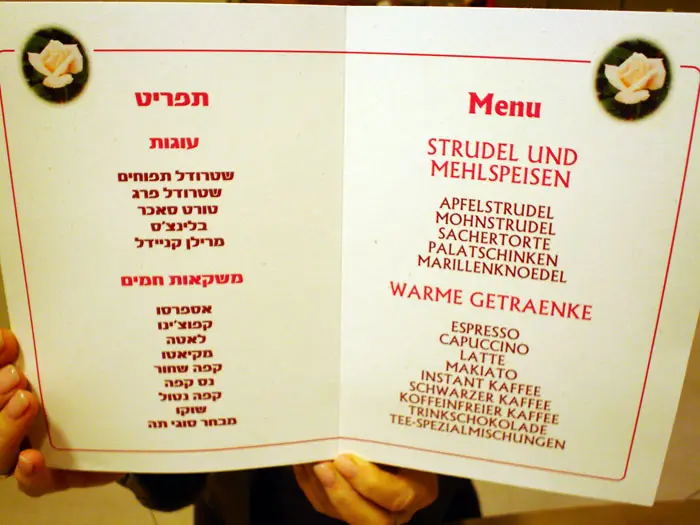 תפריט
עוגות
שטרודל תפוחים
שטרודל פרג
טורט סאכר
בלינצ'ס
מרילן קניידל
משקאות חמים
אספרסו
קפוצ'ינו
לאטה
מקיאטו
קפה שחור
נס קפה
קפה נטול
שוקו
מבחר סוגי תה
Menu
STRUDEL UND
MEHLSPEISEN
APFELSTRUDEL
MOHNSTRUDEL
SACHERTORTE
PALATSCHINKEN
MARILLENKNOEDEL
WARME GETRAENKE
ESPRESSO
CAPUCCINO
LATTE
MAKIATO
INSTANT KAFFEE
SCHWARZER KAFFEE
KOFFEINFREIER KAFFEE
TRINKSCHOKOLADE
TEE-SPEZIALMISCHUNGEN